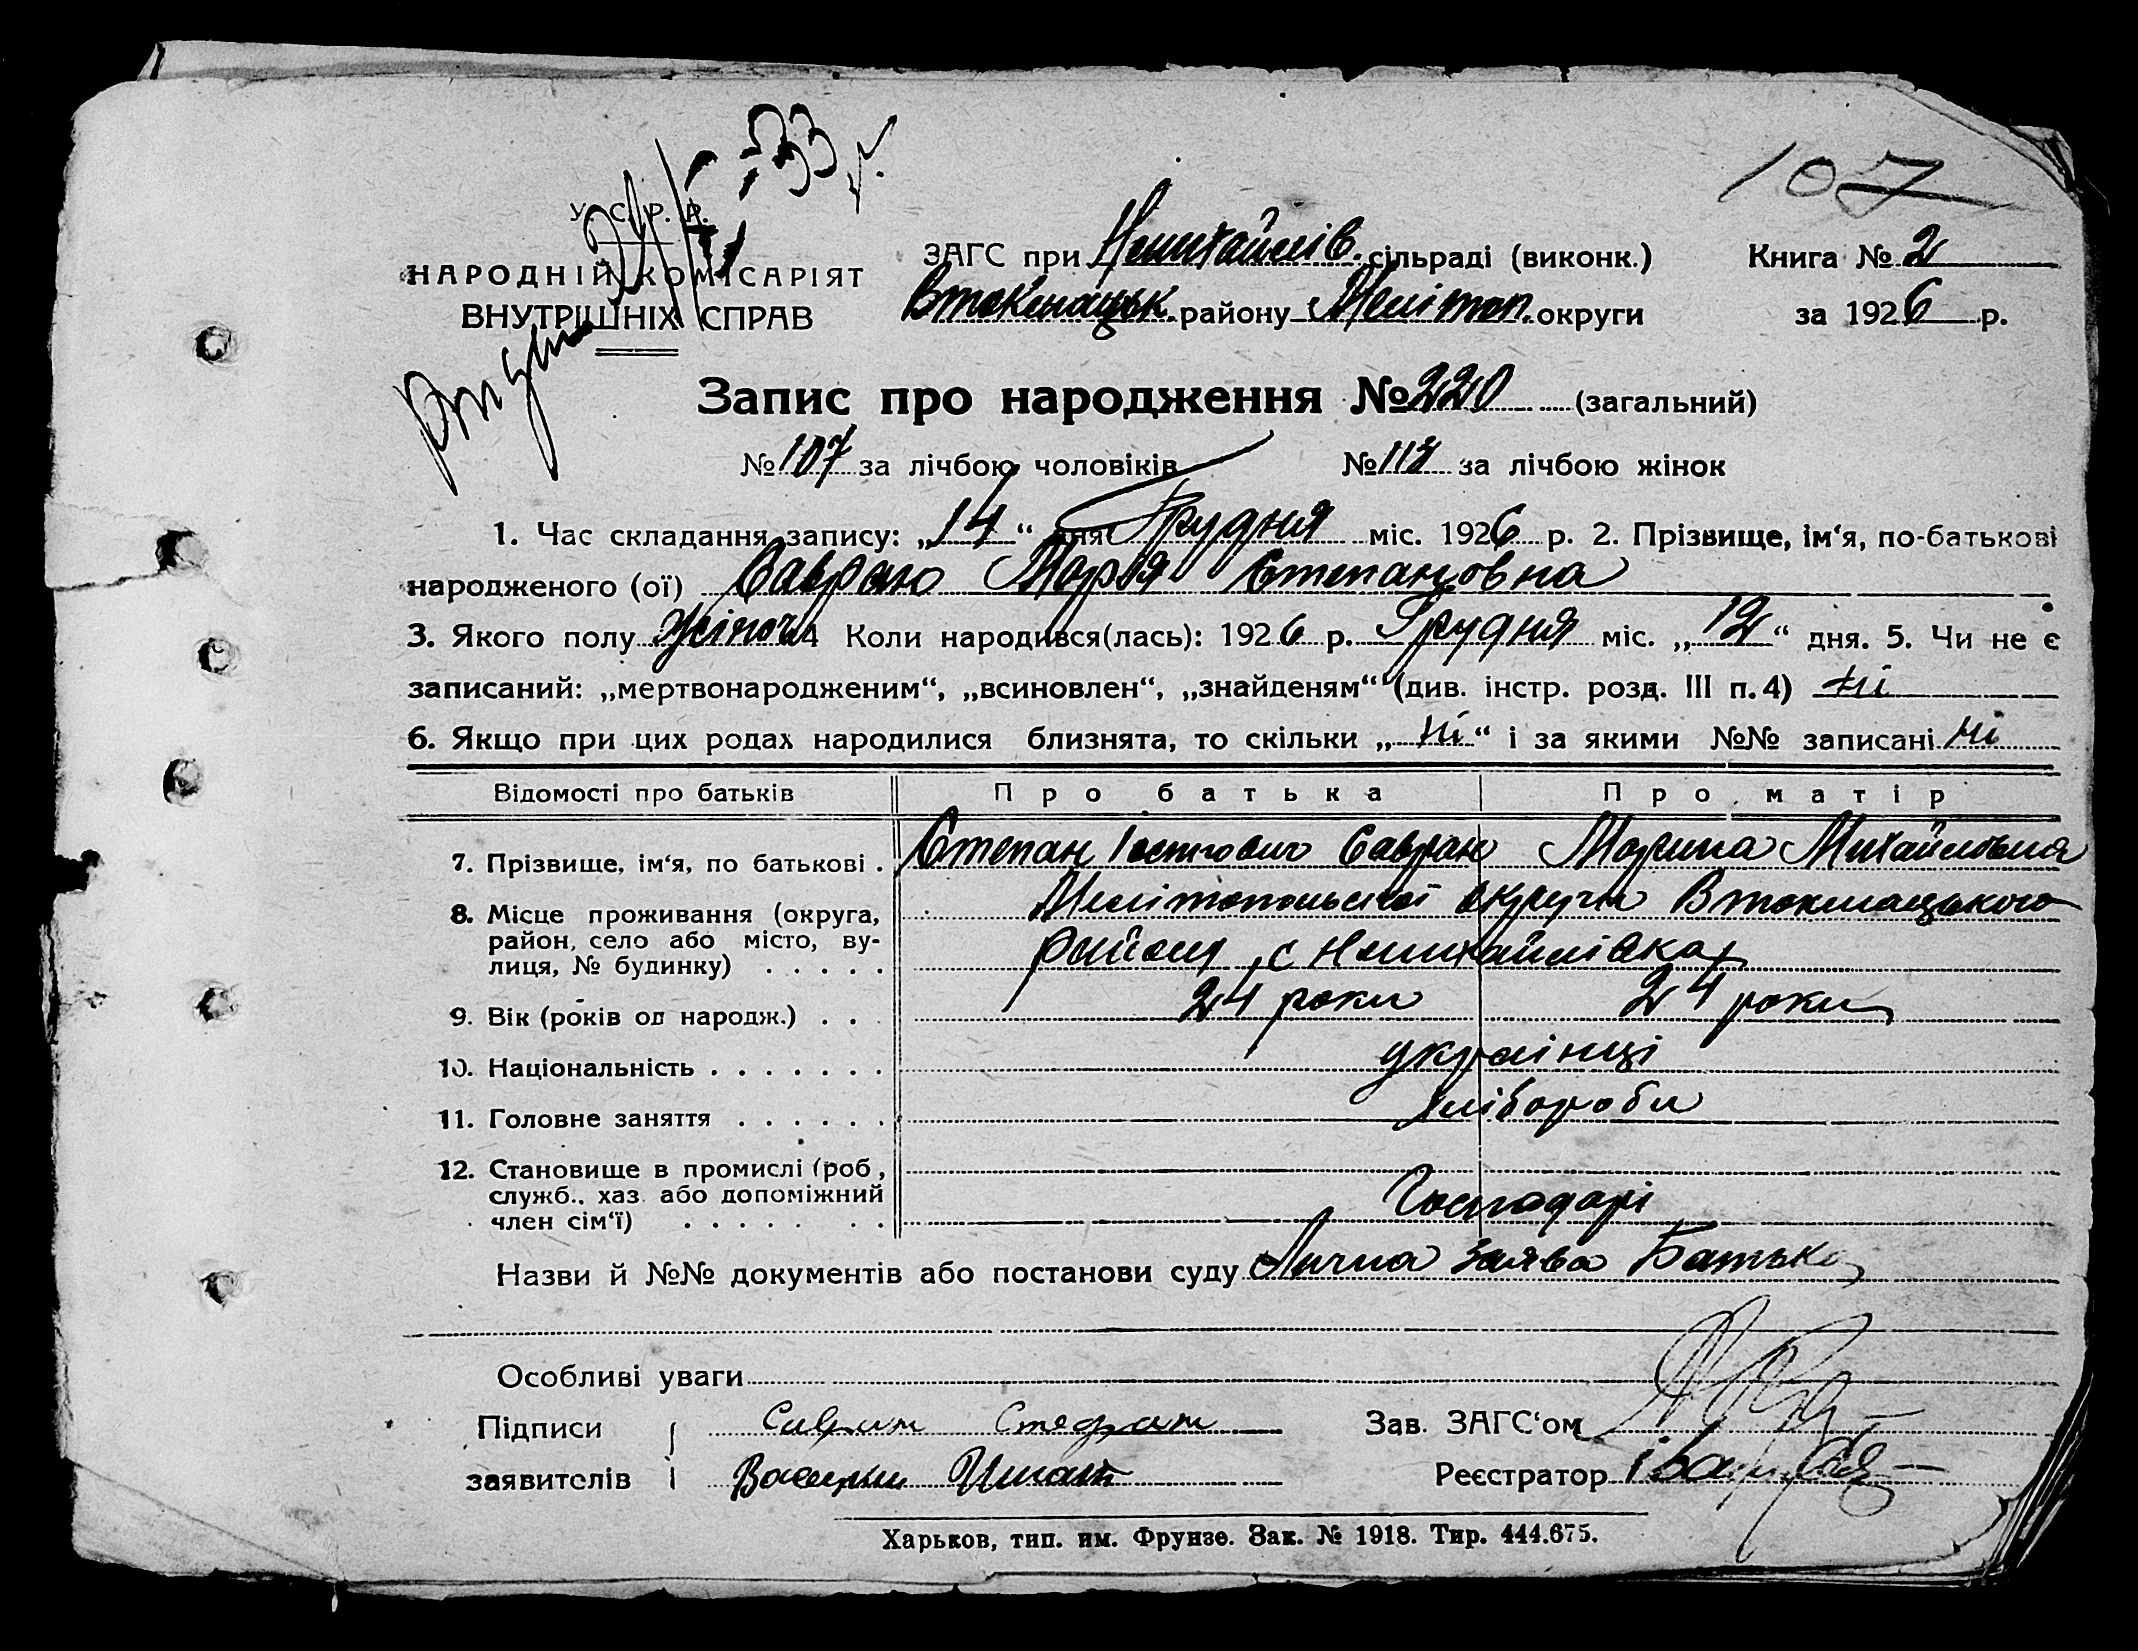 107
33 г.
У. С. Р. Р.
НАРОДНІЙ КОМІСАРІЯТ
ВНУТРІШНІХ СПРАВ
ЗАГС при сільраді (виконк.)
Книга № 2
району Мелітоп. округи
за 1926 р.
Запис про народження № 220 (загальний)
№ 107 за лічбою чоловіків № 113 за лічбою жінок
1. Час складання запису: „14“ дня Грудня міс. 1926 р. 2. Прізвище, ім‘я, по-батькові
народженого (ої) Савран Марія Степановна
3. Якого полу жіноч. 4 Коли народився(лась): 1926 р. Грудня міс. „12“ дня. 5. Чи не є
записаний: „мертвонародженим“, „всиновлен“, „знайденям“ (див. інстр. розд. III п. 4) ні
6. Якщо при цих родах народилися близнята, то скільки „ні“ і за якими №№ записані ні
Відомості про батьків Про батька Про матір
7. Прізвище, ім‘я, по батькові . Степан Савран Михайловна
8. Місце проживання (округа, Мелітопольської округи Втокмацького
район, село або місто, ву-
лиця, № будинку) . . . . . району с
9. Вік (років од народж.) . . . 24 роки 24 роки
10. Національність . . . . . . . українці
11. Головне заняття . . . . . . хлібороби
12. Становище в промислі (роб,
служб., хаз. або допоміжний
член сім‘ї) . . . . . . . Господарі
Назви й №№ документів або постанови суду Лична заява Батька
Особливі уваги
Підписи Савран Зав. ЗАГС‘ом
заявителів Реєстратор
Харьков, тип. им. Фрунзе. Зак. № 1918. Тир. 444.675.